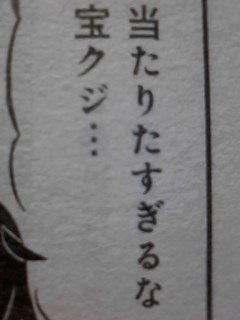 当たりたすぎるな
宝クジ…